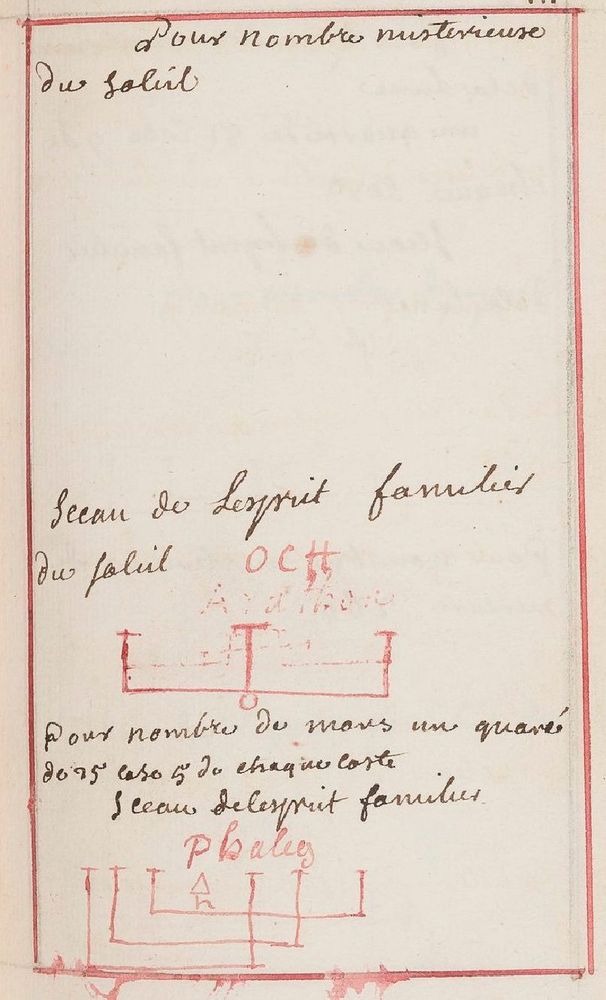 Pour nombre misterieuse
du soleil
Sceau de Lesprit familier
du soleil OCH
Pour nombre de mars un quaré
de 25 case 5 de chaque coste
Sceau delesprit familier
Phaleg